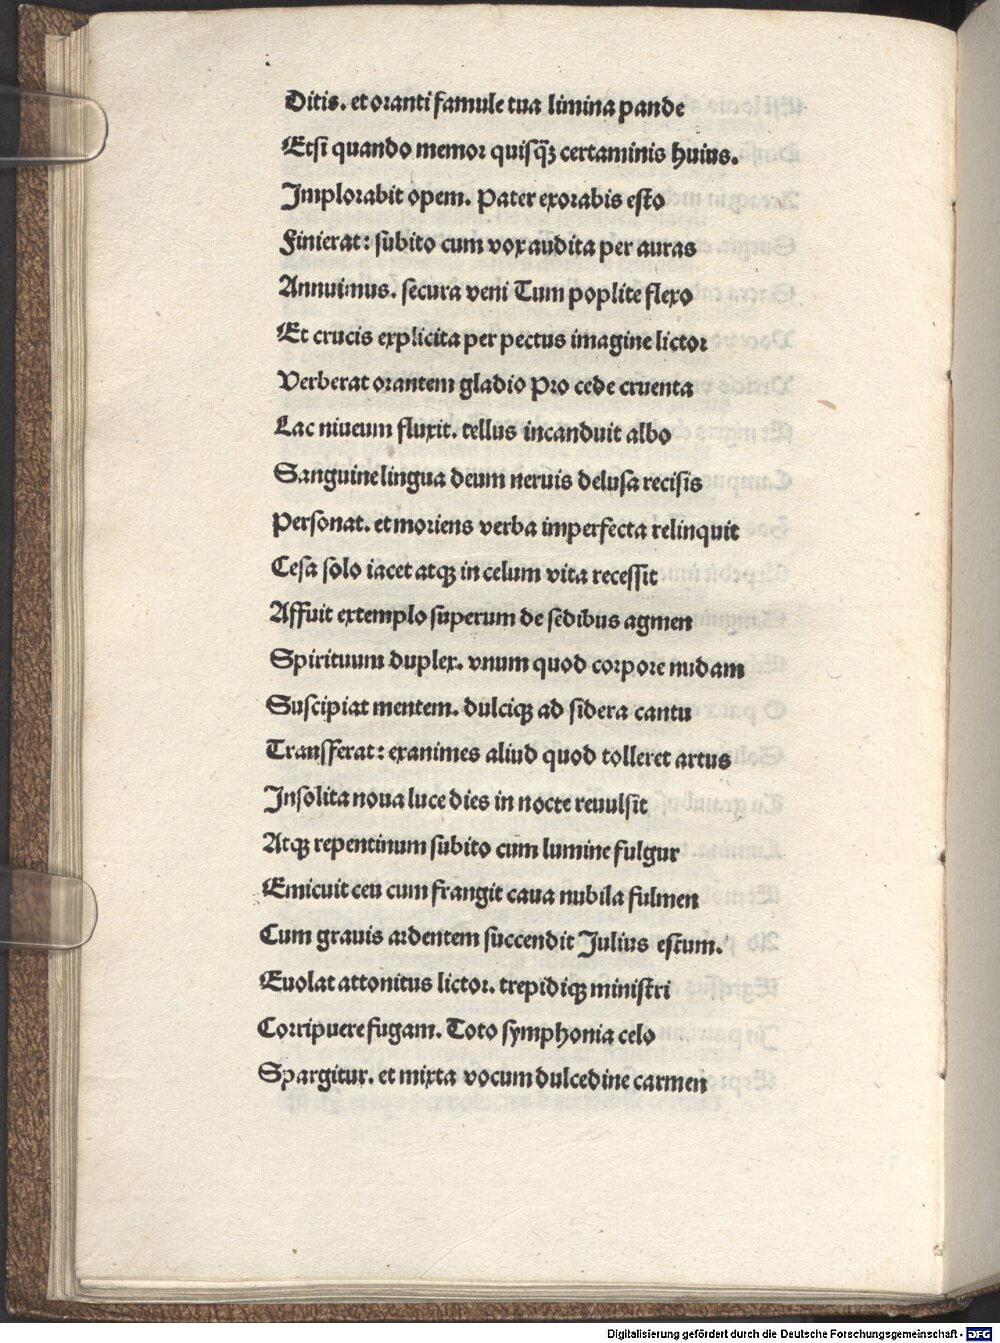 Ditis. et oranti famule tua limina pande
Etsi quando memor quisq̃ꝫ certaminis huius.
Implorabit opem. Pater exorabis esto
Finierat: subito cum vox audita per auras
Annuimus. secura veni Tum poplite flexo
Et crucis explicita per pectus imagine lictor
Verberat orantem gladio Pro cede cruenta
Lac niueum fluxit. tellus incanduit albo
Sanguine lingua deum neruis delusa recisis
Personat. et moriens verba imperfecta relinquit
Cesa solo iacet atqꝫ in celum vita recessit
Affuit extemplo superum de sedibus agmen
Spirituum duplex. vnum quod corpore nudam
Suscipiat mentem. dulciqꝫ ad sidera cantu
Transferat: exanimes aliud quod tolleret artus
Insolita noua luce dies in nocte reuulsit
Atqꝫ repentinum subito cum lumine fulgur
Emicuit ceu cum frangit caua nubila fulmen
Cum grauis ardentem succendit Julius estum.
Euolat attonitus lictor. trepidiqꝫ ministri
Corripuere fugam. Toto symphonia celo
Spargitur. et mixta vocum dulcedine carmen
Digitalisierung gefördert durch die Deutsche Forschungsgemeinschaft - DFG